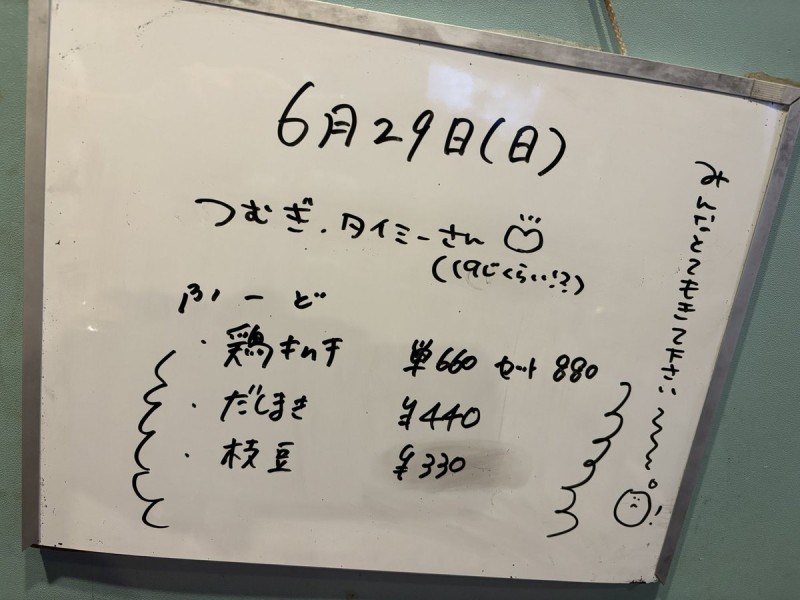 6月29日(日)
つむぎ.タイミーさん
(19じくらい!?)
ふーど
・鶏キムチ 単660 セット 880
・だしまき ¥440
・枝豆 ¥330
みんなとてもきて下さい